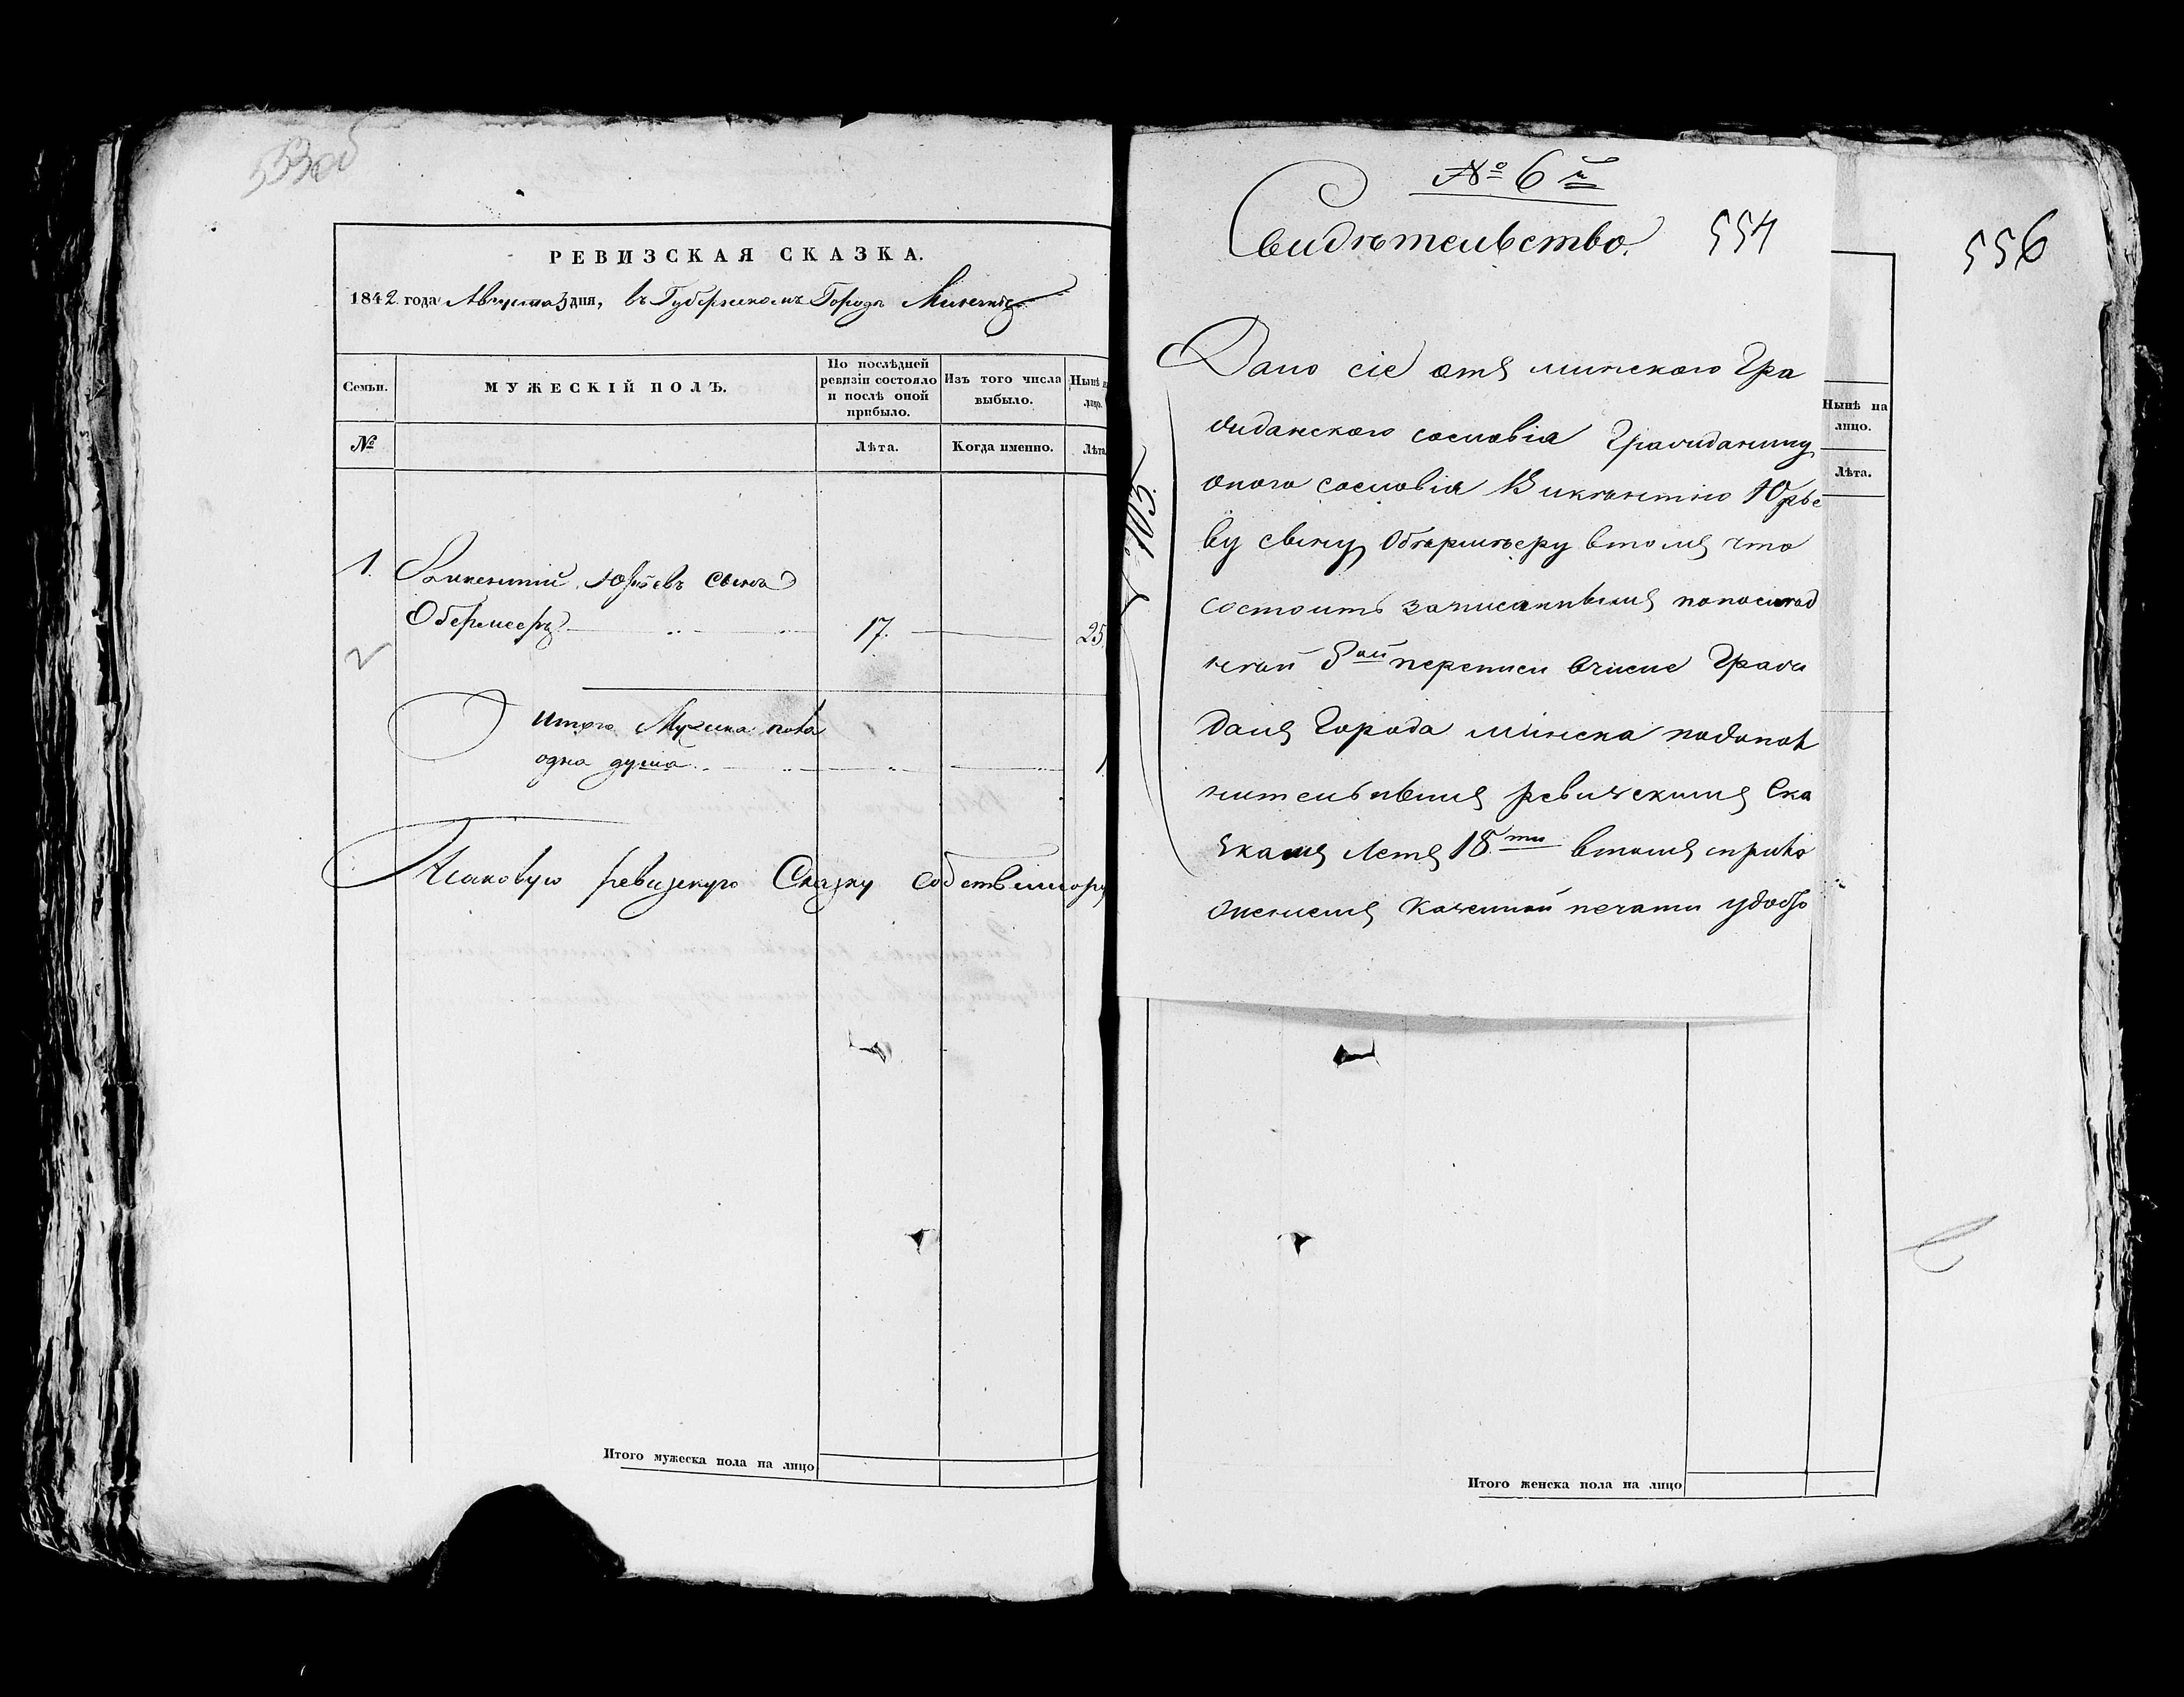 553об
РЕВИЗСКАЯ СКАЗКА.
1842 года Августа 3 дня, въ Губернскомъ Городѣ Минскѣ
Семьи.
МУЖЕСКІЙ ПОЛЪ.
По послѣдней ревизіи состояло и послѣ оной прибыло.
Изъ того числа выбыло.
Нынѣ
лицо.
№
Лѣта.
Когда именно.
Лѣта
1. Викентий Юрьевъ сынъ
Обермееръ 17. 25
Итого Мужска пола
одна душа 1
Таковую ревизскую Сказку собственнору
Итого мужеска пола на лицо
№ 6й
Свидѣтельство.
554
556
Дано сіе отъ минского Гра
жиданского сословія Гражиданину
оного сословія Викѣнтию Юрье
ву сыну Обѣрмѣеру втомъ что
состоитъ записаннымъ попослѣд
ней 8ой переписи вчисле Гражи
данъ Города минска подопол
нительнымъ ревизскимъ Ска
скамъ летъ 18ти втомъ сприло
жениемъ Казенной печати удосто
Нынѣ на
лицо.
Лѣта.
Итого женска пола на лицо